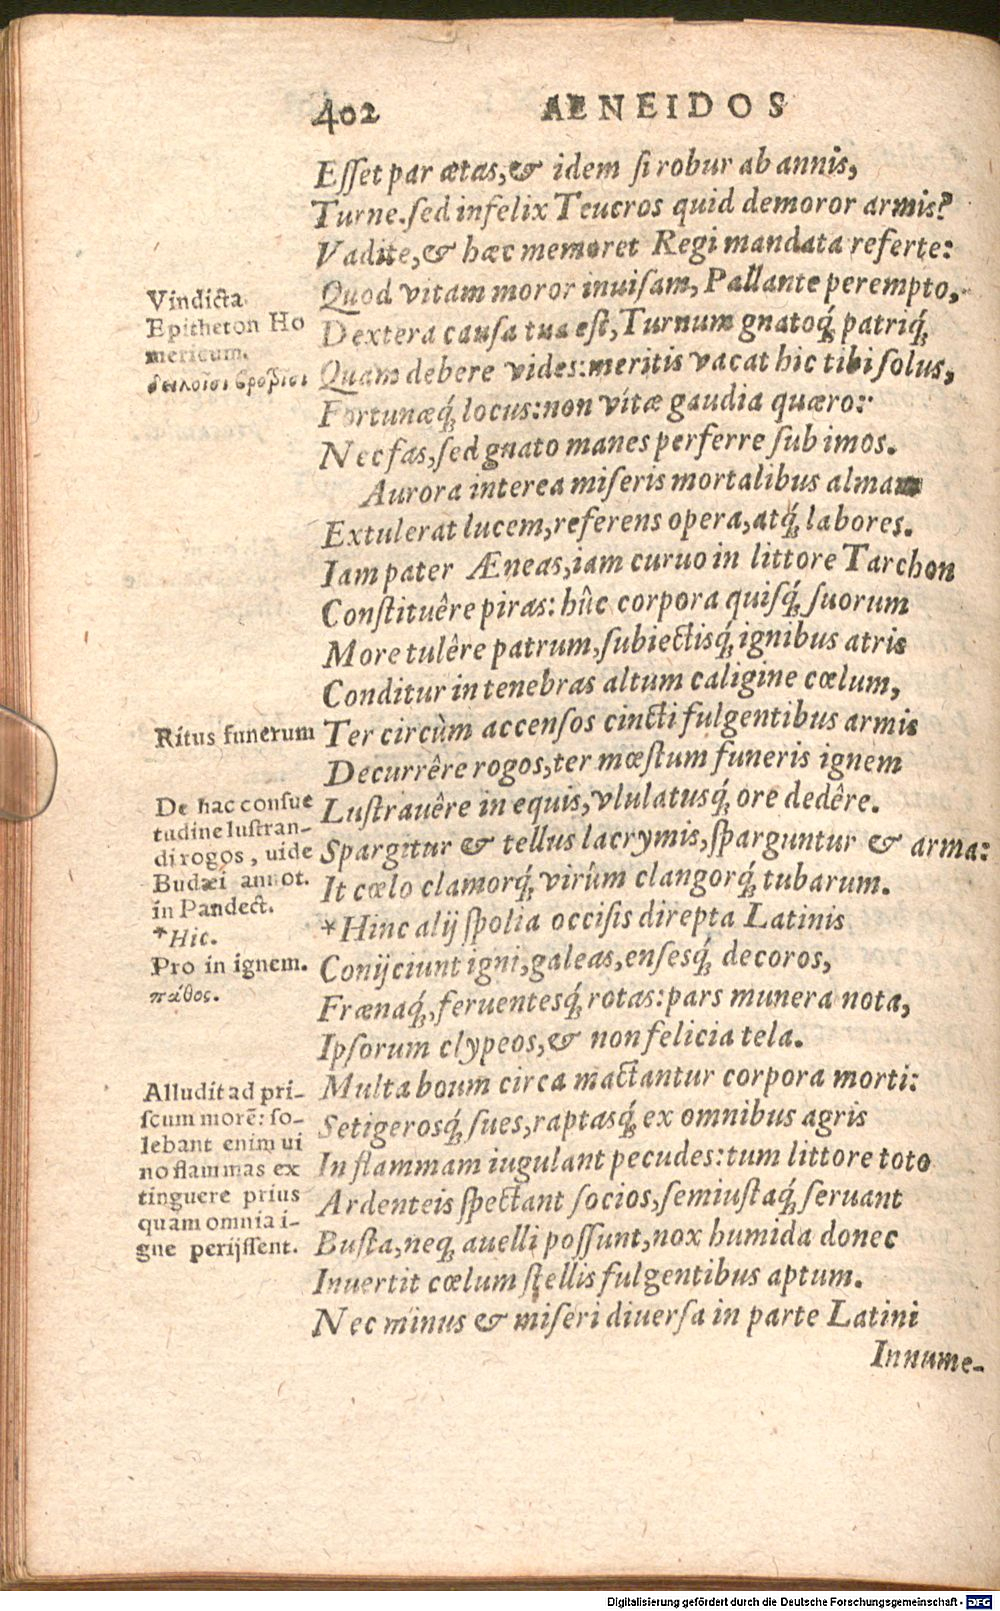 402 AENEIDOS
Eſſet par ætas, & idem ſi robur ab annis,
Turne. ſed infelix Teucros quid demoror armis?
Vadite, & hæc memoret Regi mandata referte:
Quod vitam moror inuiſam, Pallante perempto,
Dextera cauſa tua eſt, Turnum gnatoq́; patriq́;
Quam debere vides: meritis vacat hic tibi ſolus,
Fortunæq́; locus: non vítæ gaudia quæro:
Nec fas, ſed gnato manes perferre ſub imos.
Aurora interea miſeris mortalibus almam
Extulerat lucem, referens opera, atq́; labores.
Iam pater Æneas, iam curuo in littore Tarchon
Conſtituêre piras: hûc corpora quiſq́; ſuorum
More tulêre patrum, ſubiectisq́; ignibus atris
Conditur in tenebras altum caligine cœlum,
Ter circùm accenſos cincti fulgentibus armis
Decurrêre rogos, ter mœſtum funeris ignem
Luſtrauêre in equis, vlulatusq́; ore dedêre.
Spargitur & tellus lacrymis, ſparguntur & arma:
It cœlo clamorq́; virûm clangorq́; tubarum.
*Hinc alij ſpolia occiſis direpta Latinis
Conijciunt igni, galeas, enſesq́; decoros,
Frænaq́;, feruentesq́; rotas: pars munera nota,
Ipſorum clypeos, & non felicia tela.
Multa boum circa mactantur corpora morti:
Setigerosq́; ſues, raptasq́; ex omnibus agris
In flammam iugulant pecudes: tum littore toto
Ardenteis ſpectant ſocios, ſemiuſtaq́; ſeruant
Buſta, neq; auelli poſſunt, nox humida donec
Inuertit cœlum ſtellis fulgentibus aptum.
Nec minus & miſeri diuerſa in parte Latini
Innume-
Vindicta
Epitheton Ho
mericum.
δειλοῖσι βροτοῖσι
Ritus funerum
De hac conſue
tudine luſtran-
di rogos, uide
Budæi annot.
in Pandect.
*Hic.
Pro in ignem.
πάθος.
Alludit ad pri-
ſcum morē: ſo-
lebant enim ui
no flammas ex
tinguere prius
quam omnia i-
gne perijſſent.
Digitalisierung gefördert durch die Deutsche Forschungsgemeinschaft - DFG